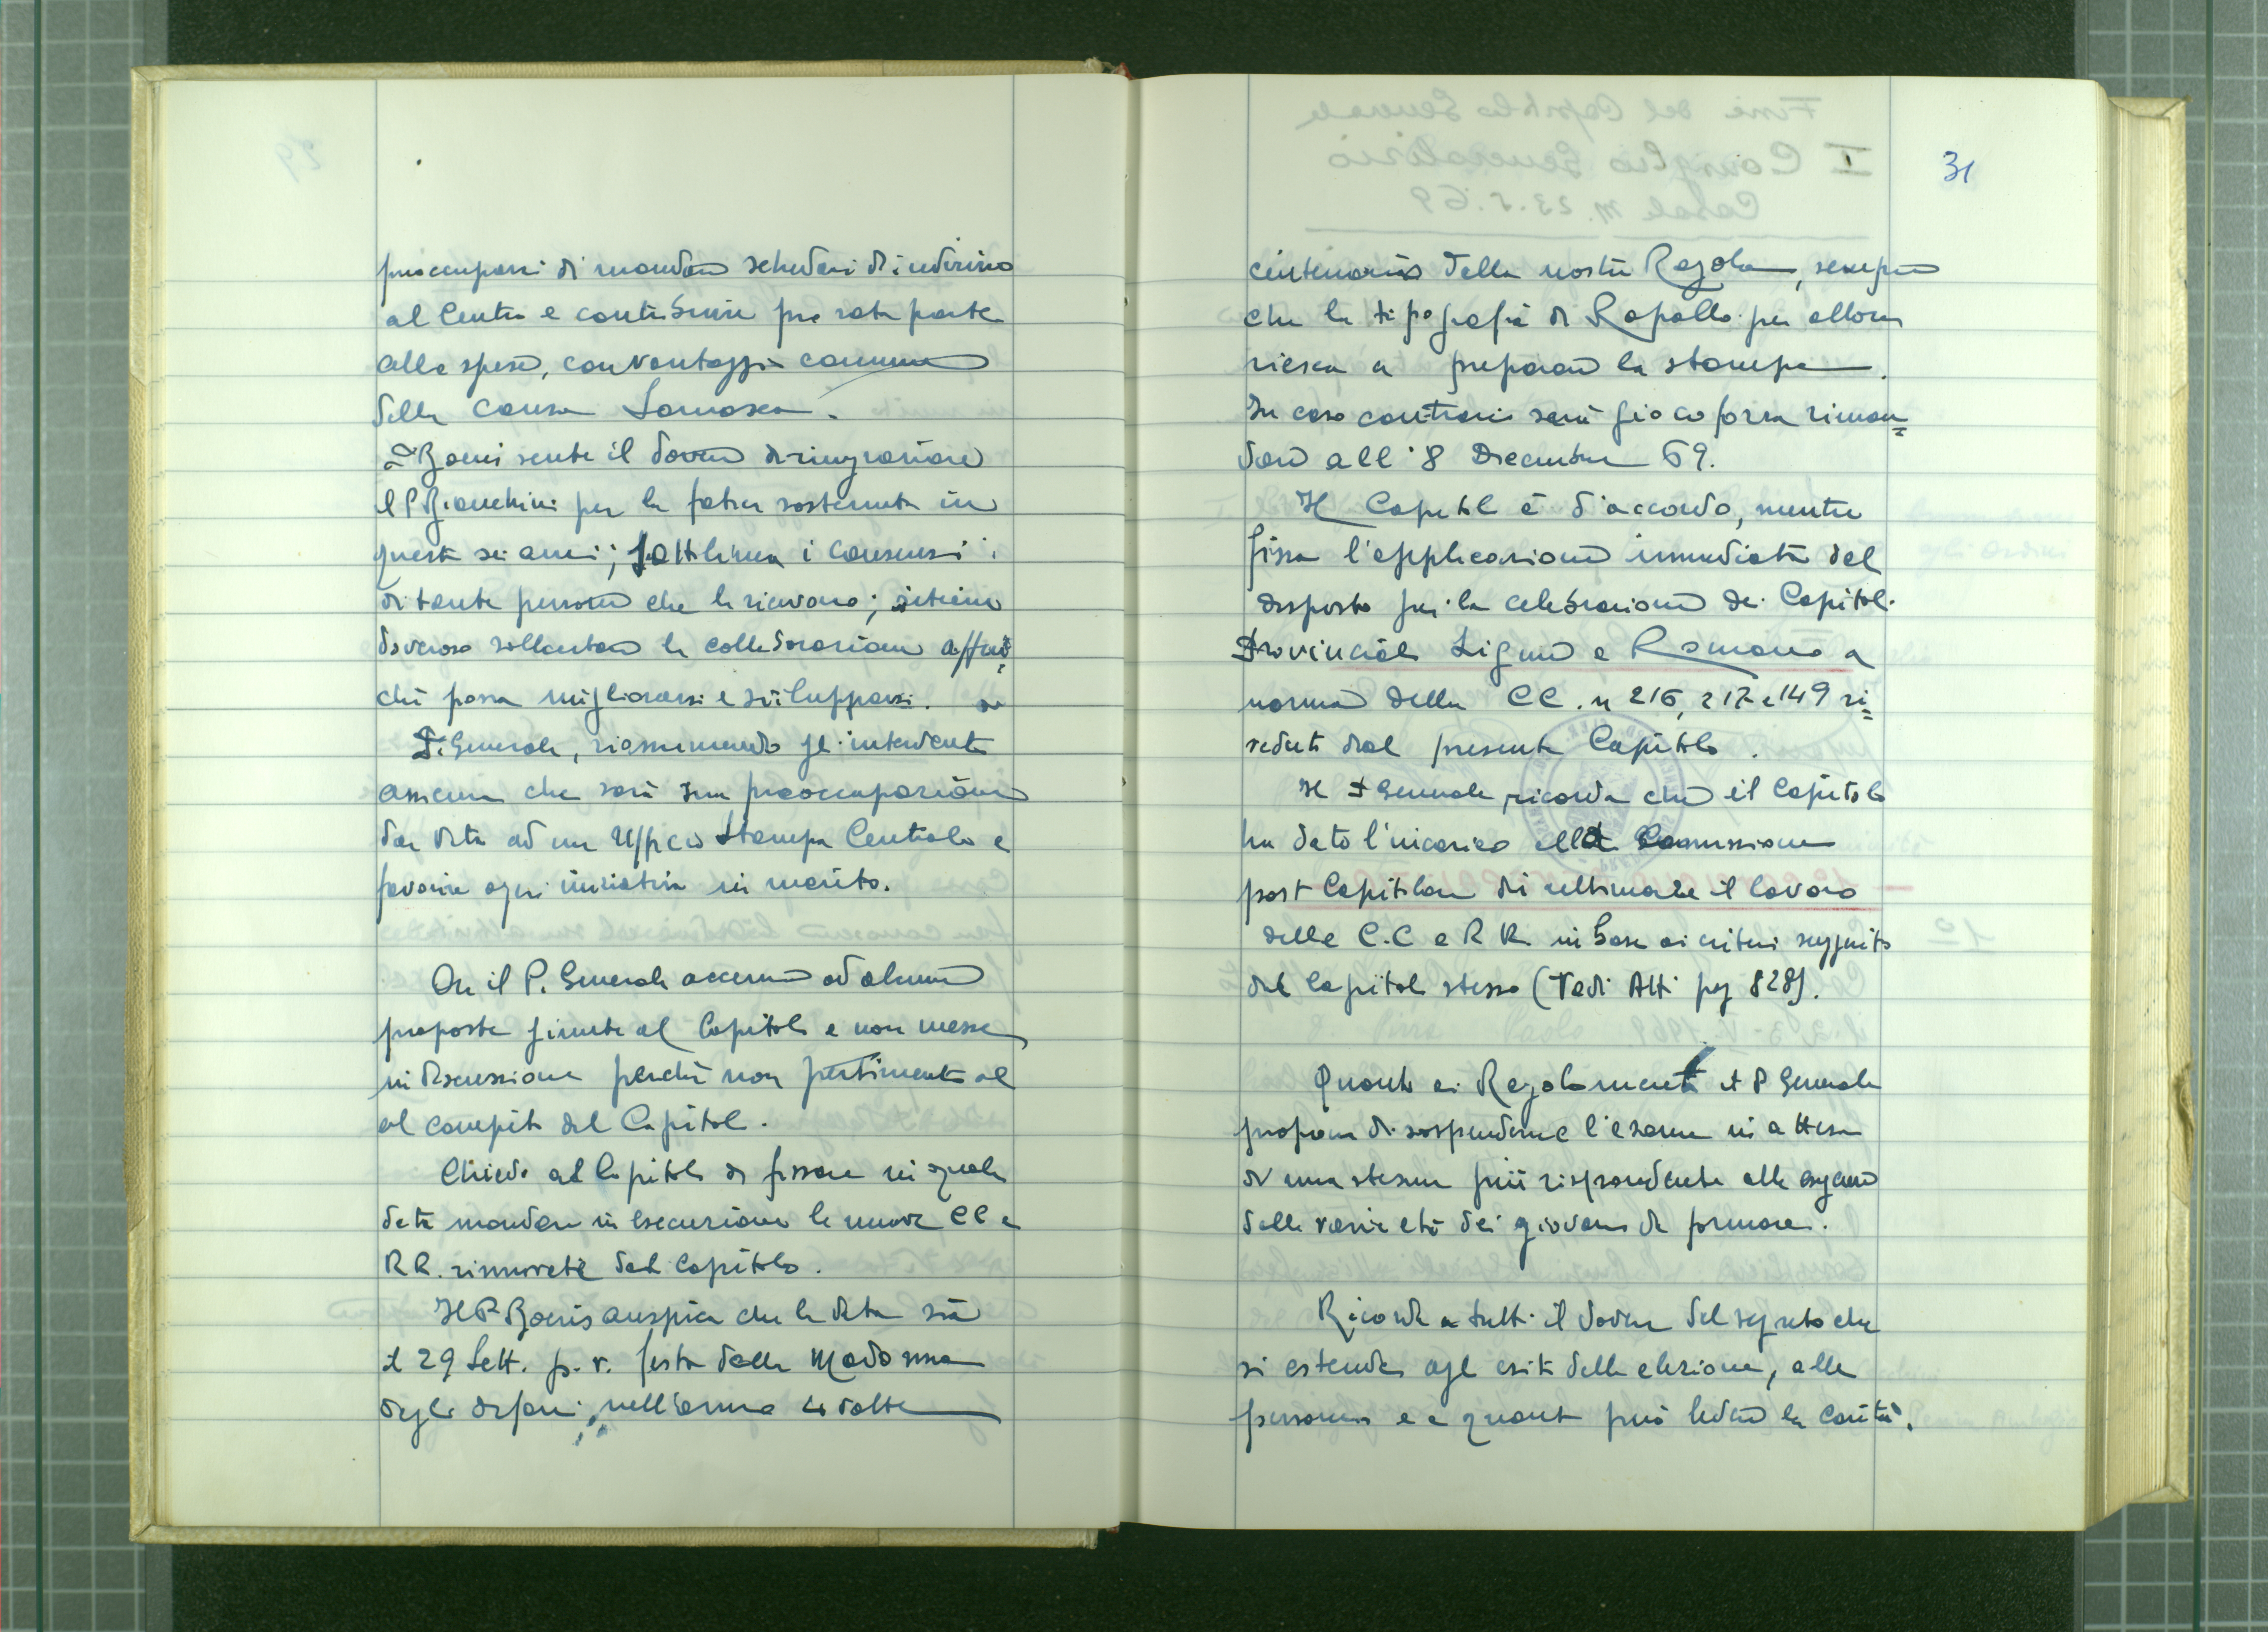 preoccuparsi di mandare schedari di indirizzo
al Centro e contribuire pro rata parte
alle spese, con vantaggio comune
della causa Somasca.
P. Boeris sente il dovere di ringraziare
il P Bianchini per la fatica sostenuta in
questi sei anni; sottolinea i consensi
di tante persone che la ricevono; ritiene
doveroso sollecitare la collaborazione affin=
chè possa migliorarsi e svilupparsi.
P. Generale, riassumendo gli interventi
assicura che sarà sua preoccupazione
dar vita ad un Ufficio Stampa Centrale e
favorire ogni iniziativa in merito.
Ora il P. Generale accenna ad alcune
proposte giunte al Capitolo e non messe
in discussione perchè non pertinenti al
al compito del Capitolo.
Chiede al Capitolo di fissare in quale
data mandare in esecuzione le nuove CC e
RR. rinnovate dal Capitolo.
Il P Boeris auspica che la data sia
il 29 Sett. p. v. festa della Madonna
degli Orfani, nell'anno 4 volte
31
centenario della nostra Regola, sempre
che la tipografia di Rapallo per allora
riesca a preparare la stampa.
In caso contrario sarà giocoforza riman=
dare all'8 Dicembre 69.
Il Capitolo è d'accordo, mentre
fissa l'applicazione immediata del
disposto per la celebrazione dei Capitoli
Provinciali Ligure e Romano a
norma delle CC. n 216, 217 e 149 ri=
vedute dal presente Capitolo.
Il P Generale ricorda che il Capitolo
ha dato l'incarico alla Commissione
post Capitolare di ultimare il lavoro
delle C.C e RR in base ai criteri seguiti
dal Capitolo stesso (Vedi Atti pag 828).
Quanto ai Regolamenti il P Generale
propone di sospenderne l'esame in attesa
di una stesura più rispondente alle esigenze
delle varie età dei giovani da formare.
Ricorda a tutti il dovere del segreto che
si estende agli esiti delle elezioni, alle
persone e a quanto può ledere la carità.